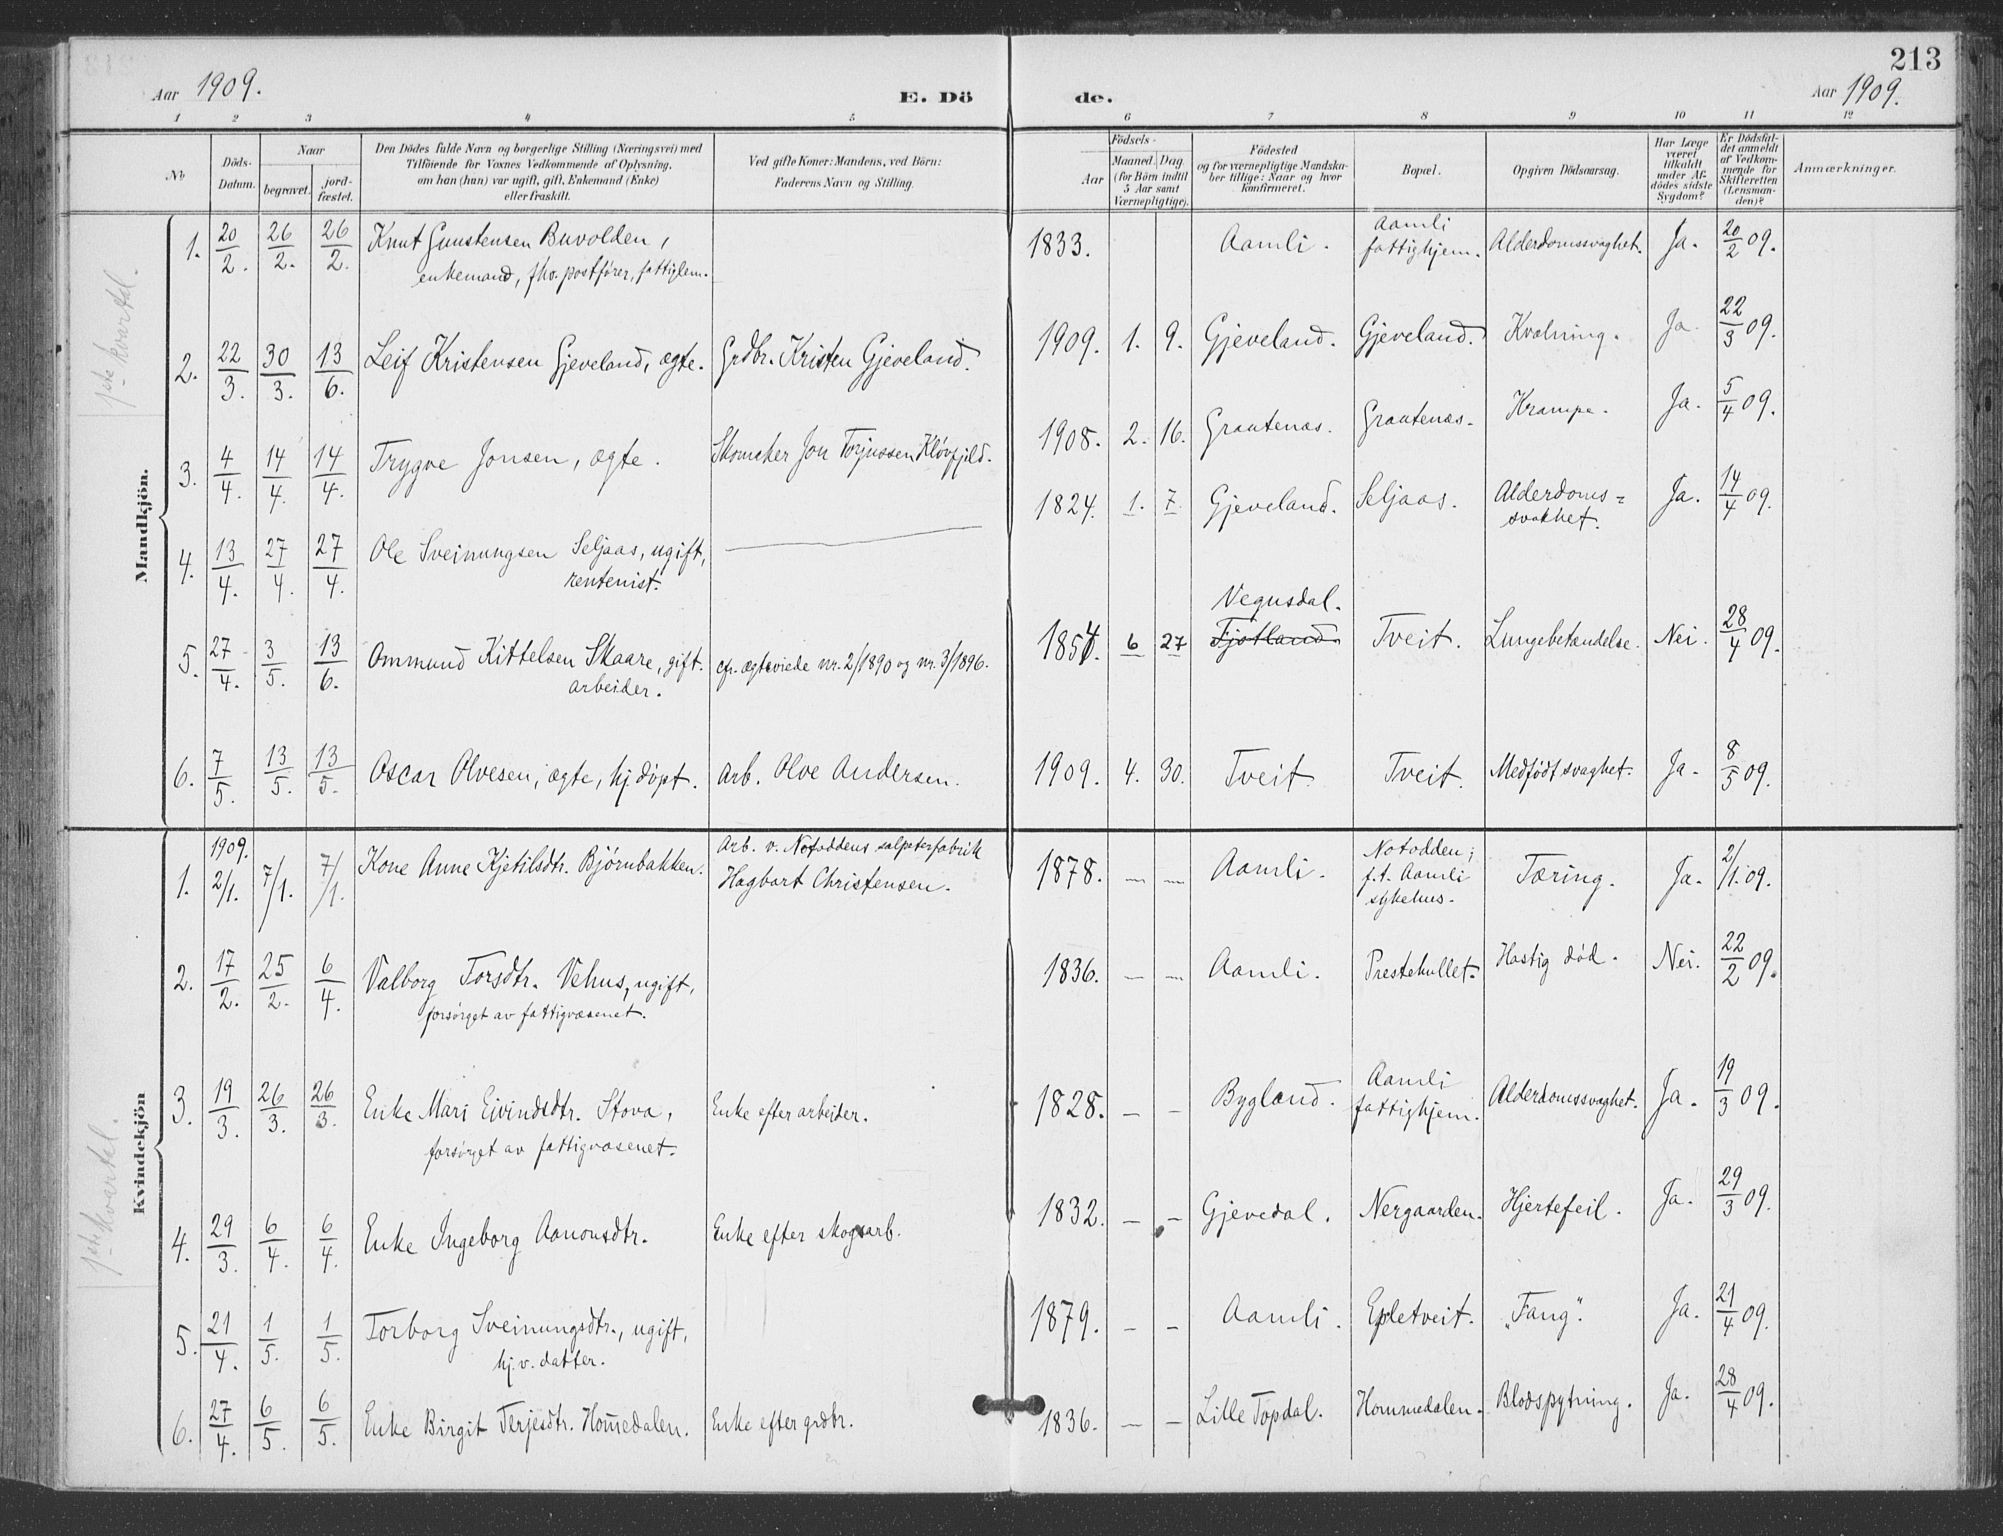 213
Aar 1909.
E. Dö
de.
Aar 1909.
1 2 3 4 5 6 7 8 9 10 11 12
No
Döds-
Datum.
Naar
begravet.
jord-
fæstet.
Den Dödes fulde Navn og borgerlige Stilling (Næringsvei) med
Tilföiende for Voxnes Vedkommende af Oplysning,
om han (hun) var ugift, gift, Enkemand (Enke)
eller fraskilt.
Ved gifte Koner: Mandens, ved Börn:
Faderens Navn og Stilling.
Födsels-
Aar
Maaned. Dag
(for Börn indtil
5 Aar samt
Værnepligtige).
Födested
og for værnepligtige Mandska-
ber tillige: Naar og hvor
konfirmeret.
Bopæl.
Opgiven Dödsaarsag.
Har Læge
været
tilkaldt
under Af-
dödes sidste
Sygdom?
Er Dödsfal-
det anmeldt
af Vedkom-
mende for
Skifteretten
(Lensman-
den)?
Anmærkninger.
Mandkjön.
1ste kvartal.
1. 20/2. 26/2. 26/2. Knut Gunstensen Buvolden, 1833. Aamli. Aamli fattighjem. Alderdomssvaghet. Ja. 20/2 09.
enkemand, fhv. postfører, fattiglem.
2. 22/3. 30/3. 13/6. Leif Kristensen Gjeveland, ægte. Grdbr. Kristen Gjeveland. 1909. 1. 9. Gjeveland. Gjeveland. Kvælning. Ja. 22/3 09.
3. 4/4. 14/4. 14/4. Trygve Jonsen, ægte. Skomaker Jon Torjussen Kløvfjild. 1908. 2. 16. Grautenæs. Grautenæs. Krampe. Ja. 5/4 09.
4. 13/4. 27/4. 27/4. Ole Sveinungsen Seljaas, ugift, 1824. 1. 7. Gjeveland. Seljaas. Alderdoms= svakhet. Ja. 14/4 09.
rentenist.
5. 27/4. 3/5. 13/6. Ommund Kittelsen Skaare, gift. cfr. ægteviede nr. 2/1890 og nr. 3/1896. 1854. 6 27 Vegusdal. Fjotland. Tveit. Lungebetændelse. Nei. 28/4 09.
arbeider.
6. 7/5. 13/5. 13/5. Oscar Olvesen, ægte, hj.døpt. Arb. Olve Andersen. 1909. 4. 30. Tveit. Tveit. Medfødt svaghet. Ja. 8/5 09.
Kvindekjön
1ste kvartal.
1909.
1. 2/1. 7/1. 7/1. Kone Anne Kjetilsdtr. Bjørnbakken. Arb. v. Notoddens salpeterfabrik Hagbart Christensen. 1878. — — Aamli. Notodden; f.t. Aamli sykehus. Tæring. Ja. 2/1. 09.
2. 17/2. 25/2. 6/4. Valborg Torsdtr. Vehus, ugift, 1836. — — Aamli. Prestehullet. Hastig død. Nei. 22/2 09.
forsørget av fattigvæsenet.
3. 19/3. 26/3. 26/3. Enke Mari Eivindsdtr. Stova, Enke efter arbeider. 1828. — — Bygland. Aamli fattighjem. Alderdomssvaghet. Ja. 19/3 09.
forsørget av fattigvæsenet.
4. 29/3. 6/4. 6/4. Enke Ingeborg Aanonsdtr. Enke efter skogsarb. 1832. — — Gjevedal. Nergaarden. Hjertefeil. Ja. 29/3 09.
5. 21/4. 1/5. 1/5. Torborg Sveinungsdtr., ugift, 1879. — — Aamli. Epletveit. „Fang“. Ja. 21/4 09.
hj.v. datter.
6. 27/4. 6/5. 6/5. Enke Birgit Terjesdtr. Hom̅edalen. Enke efter grdbr. 1836. — — Lille Topdal. Hommedalen. Blodspytning. Ja. 28/4 09.